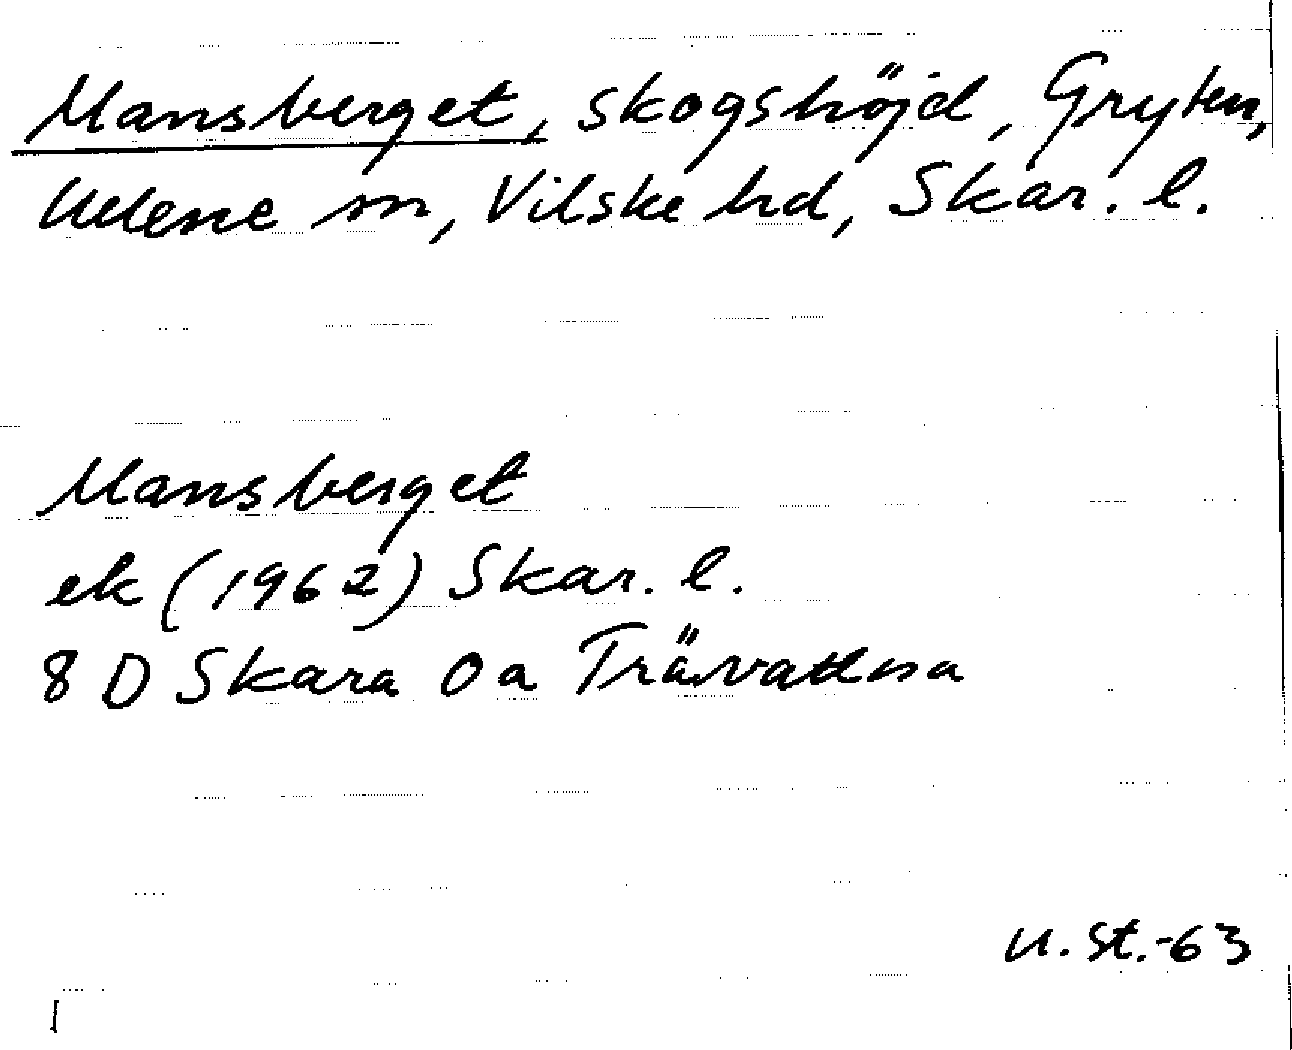 Mansberget, skogshöjd, Gryten,
Uelene sn, Vilske hd, Skar. l.
Mansberget
ek (1962) Skar. l.
8 D Skara 0 a Trävattna
U. St. -63